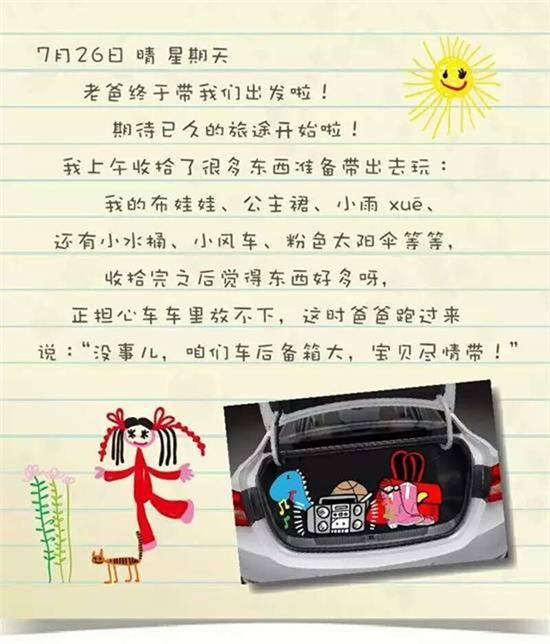 7月26日 晴 星期天
老爸终于带我们出发啦！
期待已久的旅途开始啦！
我上午收拾了很多东西准备带出去玩：
我的布娃娃、公主裙、小雨 xuē、
还有小水桶、小风车、粉色太阳伞等等，
收拾完之后觉得东西好多呀，
正担心车车里放不下，这时爸爸跑过来
说：“没事儿，咱们车后备箱大，宝贝尽情带！”